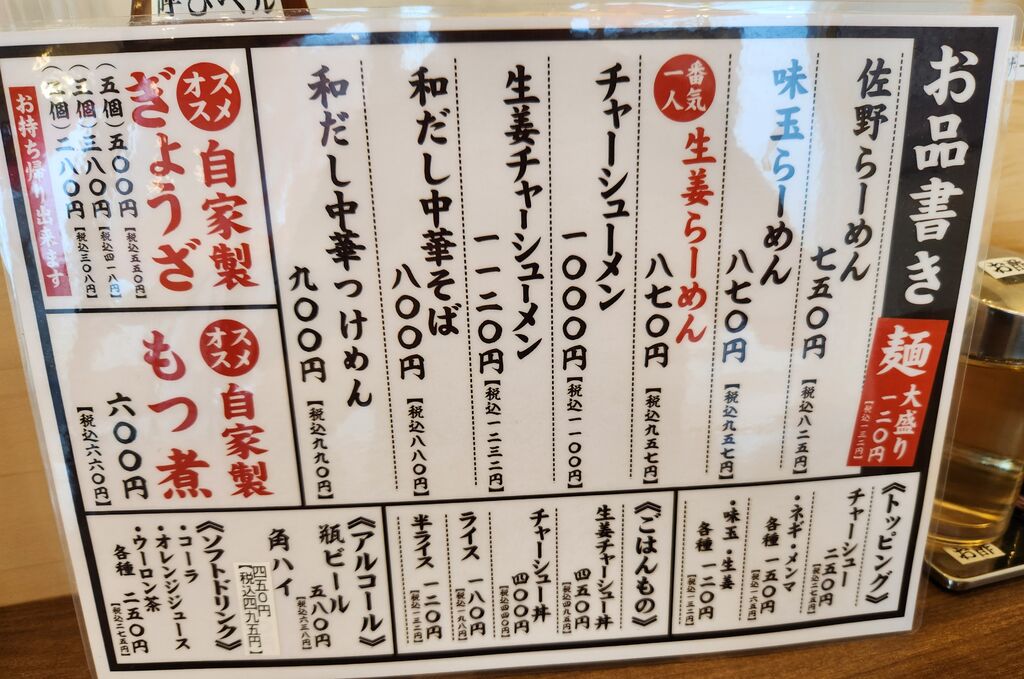 呼びベル
お品書き
麺
大盛り
一二〇円
【税込一三二円】
佐野らーめん
七五〇円
【税込八二五円】
味玉らーめん
八七〇円
【税込九五七円】
一番人気
生姜らーめん
八七〇円
【税込九五七円】
チャーシューメン
一〇〇〇円
【税込一一〇〇円】
生姜チャーシューメン
一一二〇円
【税込一二三二円】
和だし中華そば
八〇〇円
【税込八八〇円】
和だし中華つけめん
九〇〇円
【税込九九〇円】
オススメ
自家製
ぎょうざ
(五個)五〇〇円【税込五五〇円】
(三個)三八〇円【税込四一八円】
(二個)二八〇円【税込三〇八円】
お持ち帰り出来ます
オススメ
自家製
もつ煮
六〇〇円
【税込六六〇円】
《トッピング》
チャーシュー
二五〇円
【税込二七五円】
・ネギ・メンマ
各種 一五〇円
【税込一六五円】
・味玉・生姜
各種 一二〇円
【税込一三二円】
《ごはんもの》
生姜チャーシュー丼
四五〇円
【税込四九五円】
チャーシュー丼
四〇〇円
【税込四四〇円】
ライス 一八〇円
【税込一九八円】
半ライス 一二〇円
【税込一三二円】
《アルコール》
瓶ビール
五八〇円
【税込六三八円】
角ハイ
四五〇円
【税込四九五円】
《ソフトドリンク》
・コーラ
・オレンジジュース
・ウーロン茶
各種 二五〇円
【税込二七五円】
お酢
お酢